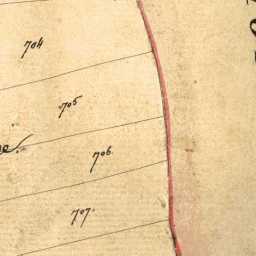 704
705
706
707.